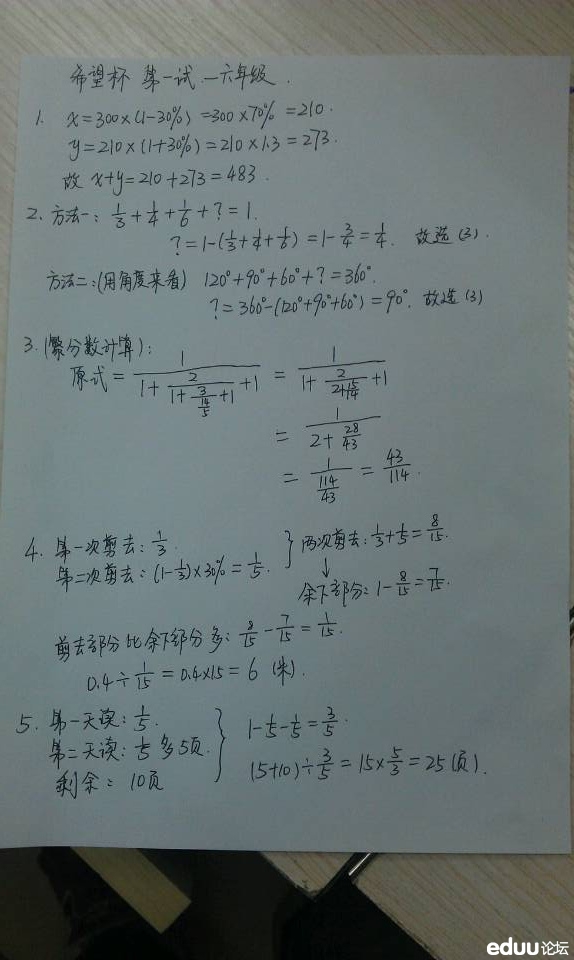 希望杯 第一试—六年级.
1. x=300×(1-30%)=300×70%=210.
y=210×(1+30%)=210×1.3=273.
故 x+y=210+273=483.
2. 方法一: 1/3+1/4+1/6+?=1.
?=1-(1/3+1/4+1/6)=1-3/4=1/4. 故选(3).
方法二:(用角度来看) 120°+90°+60°+?=360°.
?=360°-(120°+90°+60°)=90°. 故选(3)
3. (繁分数计算):
原式=1/(1+2/(1+3/(14/5)+1)+1) = 1/(1+2/(2+15/14)+1)
= 1/(2+28/43)
= 1/(114/43) = 43/114.
4. 第一次剪去: 1/3.
第二次剪去: (1-1/3)×30%=1/5.
} 两次剪去: 1/3+1/5=8/15.
↓
余下部分: 1-8/15=7/15.
剪去部分比余下部分多: 8/15-7/15=1/15.
0.4÷1/15=0.4×15=6 (米).
5. 第一天读: 1/5.
第二天读: 1/5多5页.
剩余: 10页
} 1-1/5-1/5=3/5.
(5+10)÷3/5=15×5/3=25(页).
eduu论坛